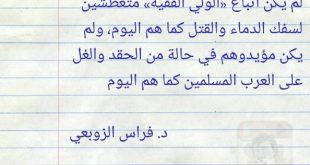 لم يكن أتباع «الولي الفقيه» متعطشين
لسفك الدماء والقتل كما هم اليوم، ولم
يكن مؤيدوهم في حالة من الحقد والغل
على العرب المسلمين كما هم اليوم
د. فراس الزوبعي